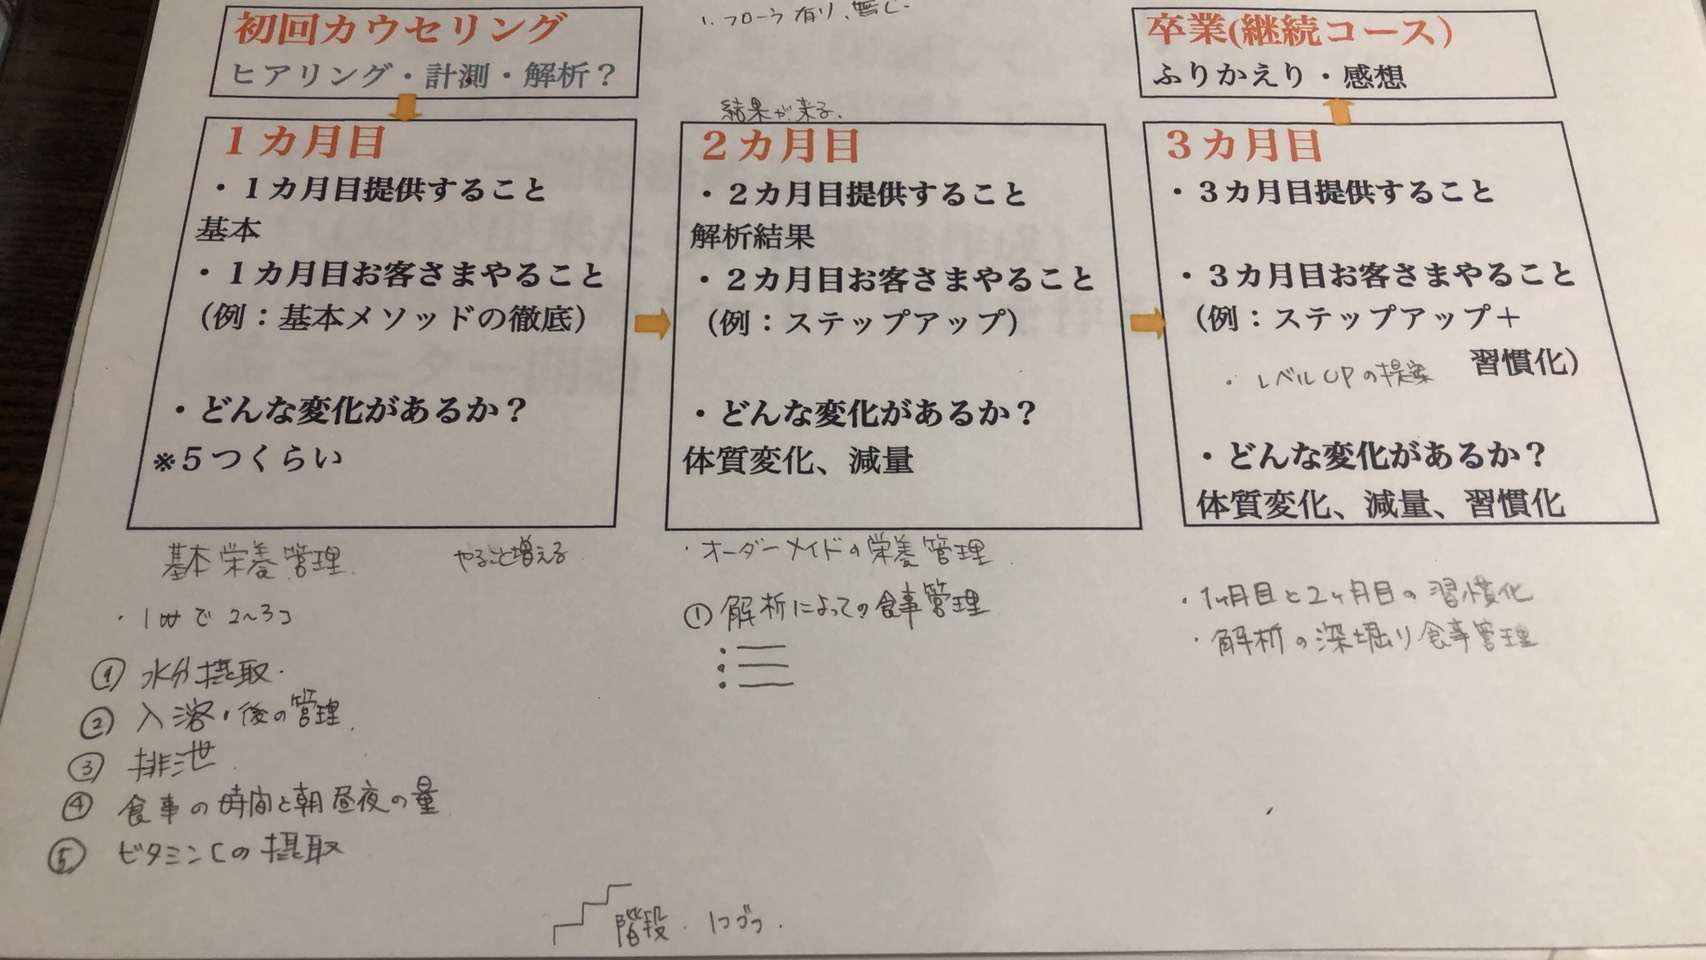 初回カウセリング
ヒアリング・計測・解析？
フローラ有り、無し.
卒業(継続コース)
ふりかえり・感想
１カ月目
・１カ月目提供すること
基本
・１カ月目お客さまやること
（例：基本メソッドの徹底）
・どんな変化があるか？
※５つくらい
結果が来る.
２カ月目
・２カ月目提供すること
解析結果
・２カ月目お客さまやること
（例：ステップアップ）
・どんな変化があるか？
体質変化、減量
３カ月目
・３カ月目提供すること
・３カ月目お客さまやること
（例：ステップアップ＋
習慣化）
・レベルUPの提案
・どんな変化があるか？
体質変化、減量、習慣化
基本栄養管理.
やること増える
・1wで2〜3コ
① 水分摂取.
② 入浴・後の管理.
③ 排泄
④ 食事の時間と朝昼夜の量
⑤ ビタミンCの摂取
・オーダーメイドの栄養管理
① 解析によっての食事管理
・1ヶ月目と2ヶ月目の習慣化
・解析の深堀り食事管理
階段. 1コづつ.